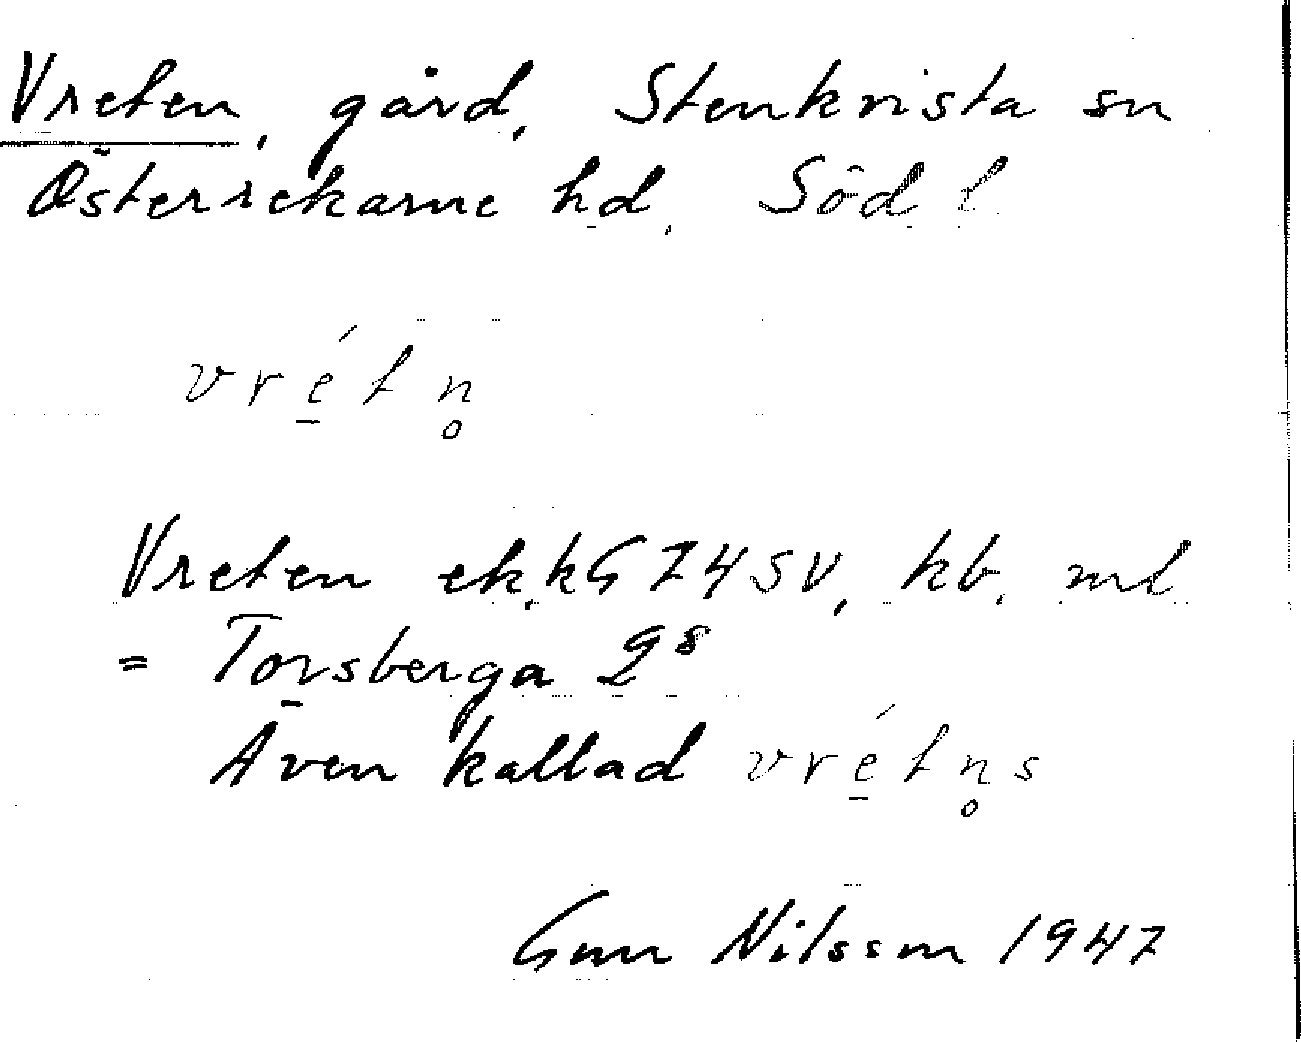 Vreten, gård, Stenkvista sn
Österrekarne hd, Söd l.
vrétn̥
Vreten ek.kG 74 SV, kb. ml
= Torsberga 2⁸
Även kallad vrétn̥s
Gun Nilsson 1947